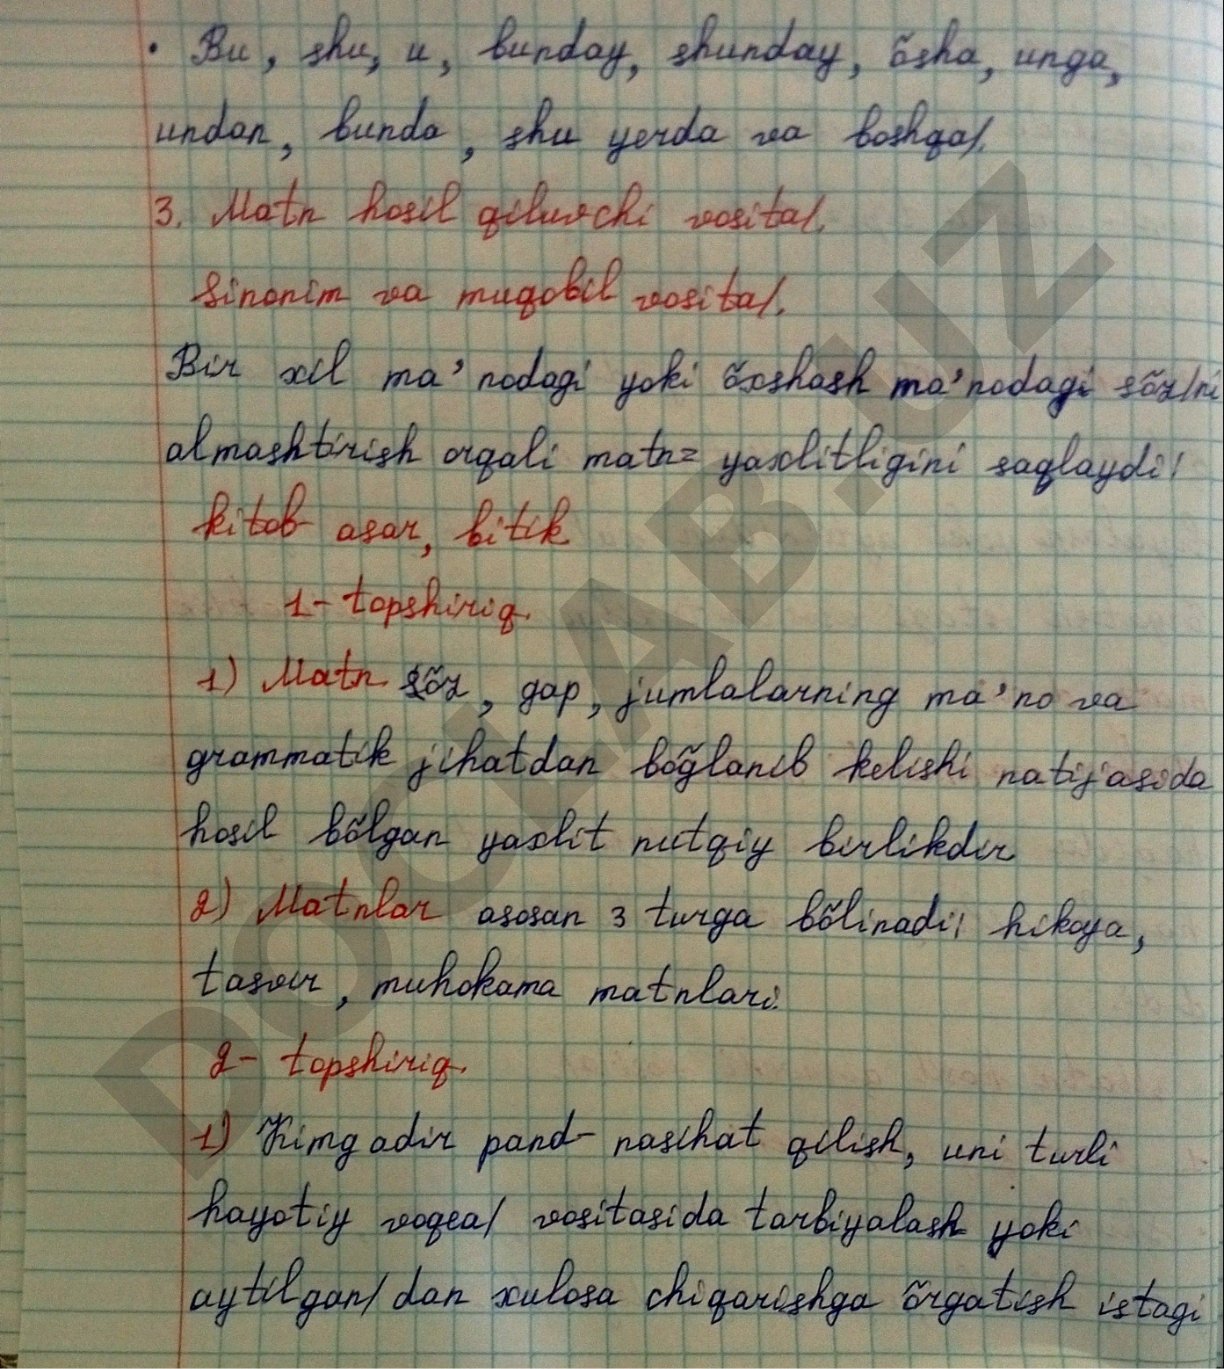 • Bu, shu, u, bunday, shunday, õsha, unga,
undan, bunda, shu yerda va boshqa/.
3. Matn hosil qiluvchi vosita/.
Sinonim va muqobil vosita/.
Bir xil ma'nodagi yoki õxshash ma'nodagi sõz/ni
almashtirish orqali matn= yaxlitligini saqlaydi:
kitob- asar, bitik
1- topshiriq.
1) Matn sõz, gap, jumlalarning ma'no va
grammatik jihatdan bõg̃lanib kelishi natijasida
hosil bõlgan yaxlit nutqiy birlikdir
2) Matnlar asosan 3 turga bõlinadi: hikoya,
tasvir, muhokama matnlari.
2- topshiriq.
1) Kimgadir pand- nasihat qilish, uni turli
hayotiy voqea/ vositasida tarbiyalash yoki
aytilgan/dan xulosa chiqarishga õrgatish istagi
DOCLAB.UZ